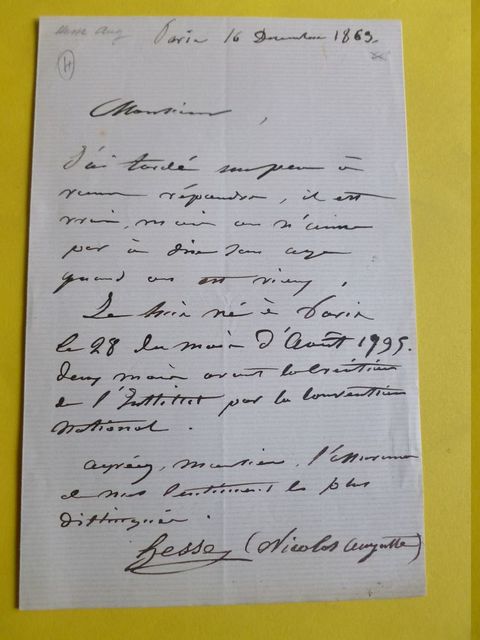 Hesse Aug
Paris 16 Decembre 1863.
H
Monsieur,
J'ai tardé un peu à
vous répondre, il est
vrai, mais on n'aime
pas à dire son age
quand on est vieux,
Je suis né à Paris
le 28 du mois d'Août 1795.
deux mois avant la Création
de l'Institut par la Convention
National.
agréez, monsieur, l'assurance
de mes sentiments les plus
distingués.
Hesse (Nicolas Auguste)